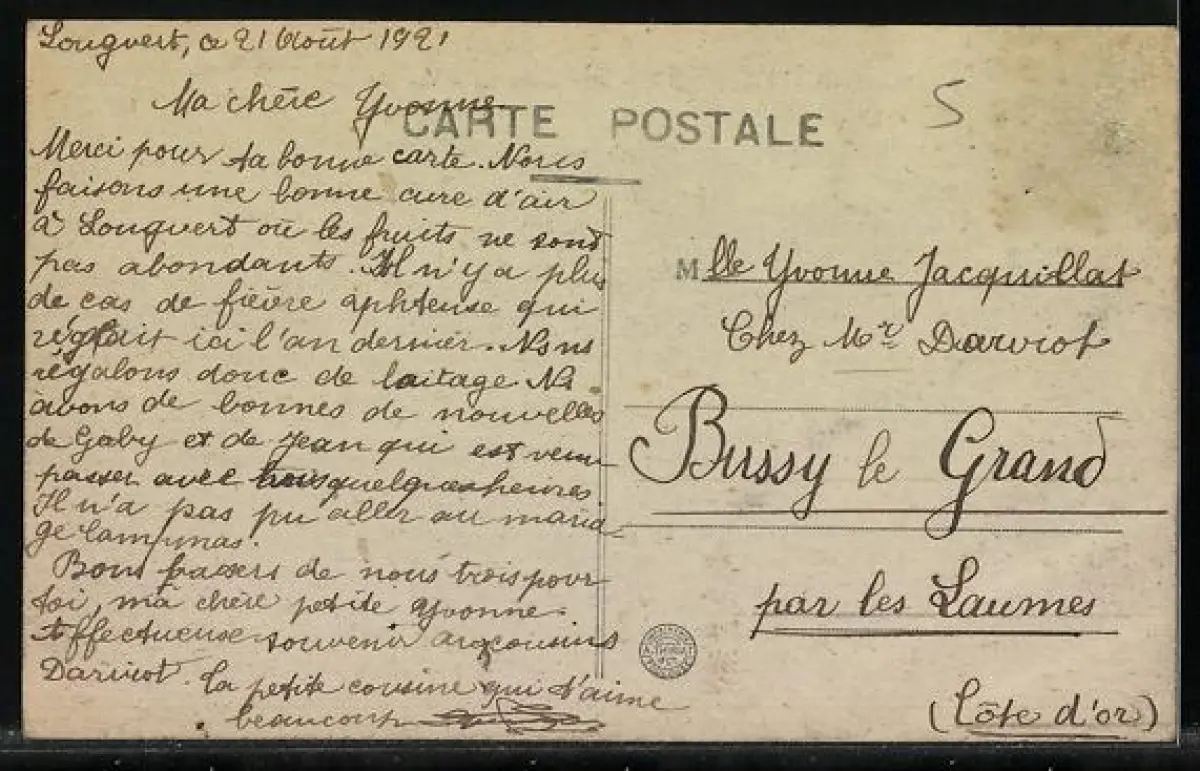 Longvert, ce 21 Août 1921
Ma chère Yvonne
CARTE POSTALE
5
Merci pour ta bonne carte. Nous
faisons une bonne cure d'air
à Longvert où les fruits ne sont
pas abondants. Il n'y a plus
de cas de fièvre aphteuse qui
régnait ici l'an dernier. Nous
régalons donc de laitage. Ns
avons de bonnes de nouvelles
de Gaby et de Jean qui est venu
passer avec nous quelques heures
Il n'a pas pu aller au maria
ge
Bons baisers de nous trois pour
toi, ma chère petite Yvonne.
Affectueuse souvenir aux cousins
Darviot. La petite cousine qui t'aime
beaucoup
Mlle Yvonne Jacquillat
Chez Mr Darviot
Bussy le Grand
par les Laumes
(Côte d'or)